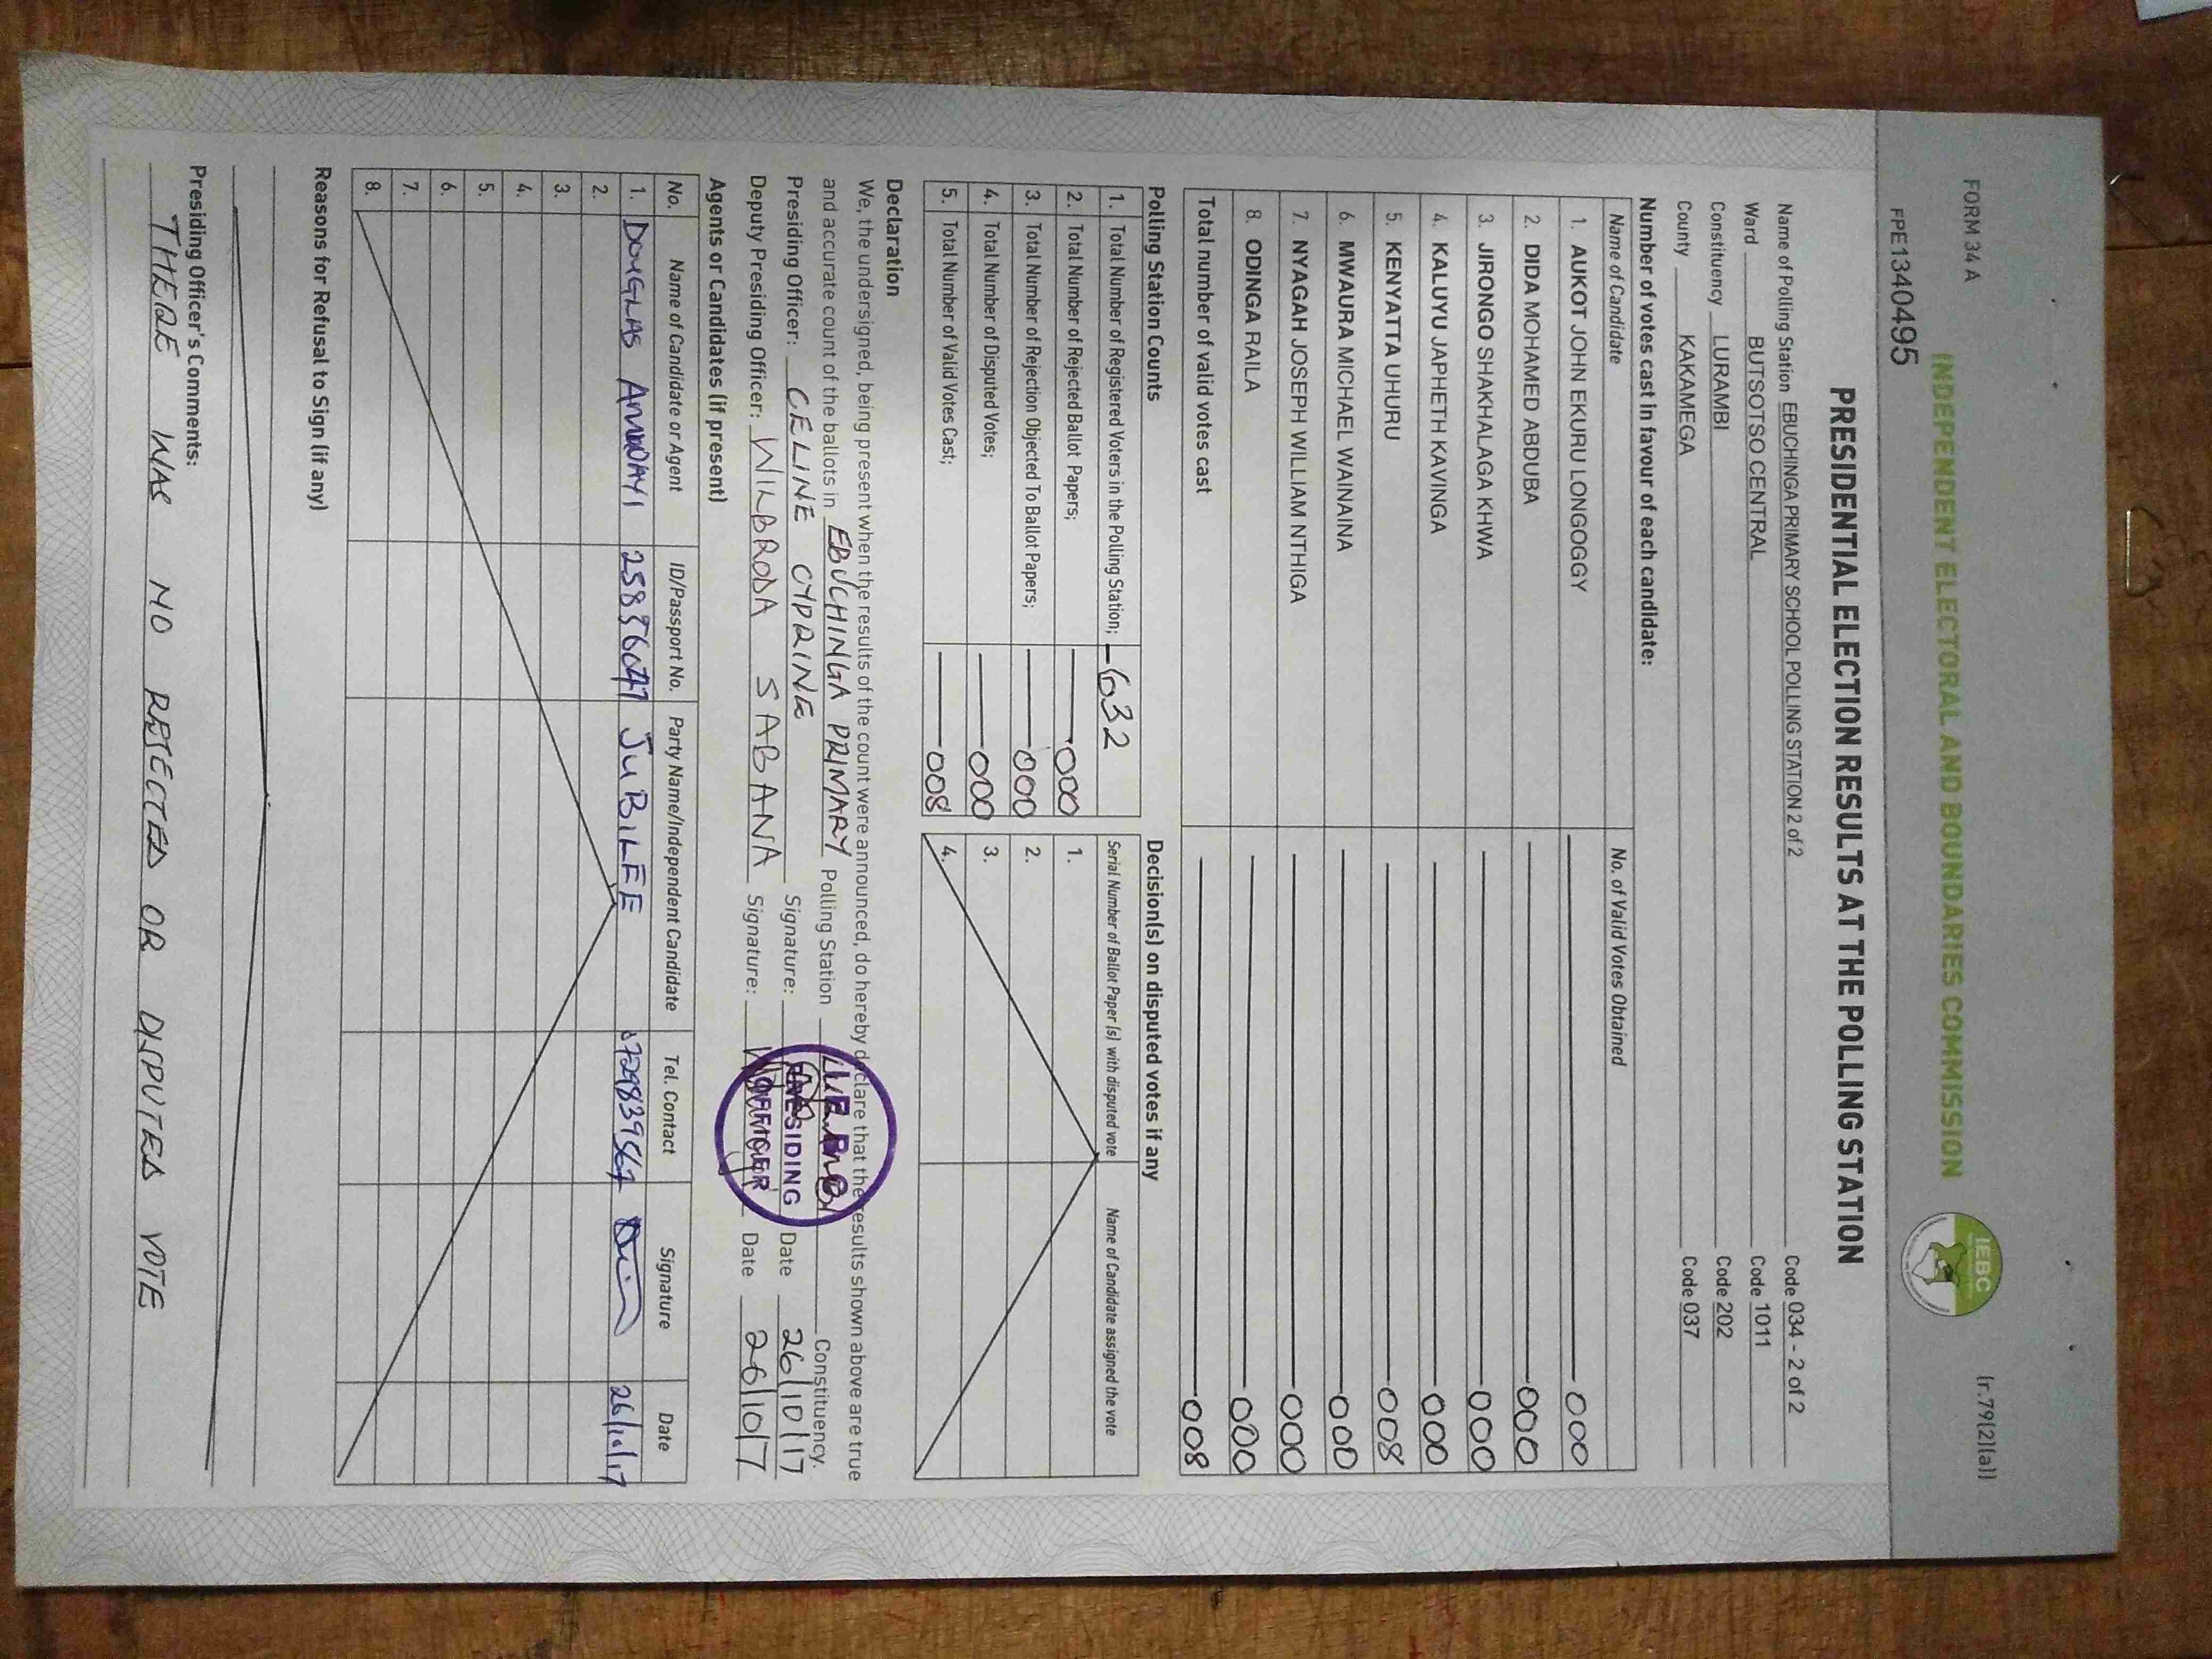 FORM 34 A
(r.79(2)(a))
INDEPENDENT ELECTORAL AND BOUNDARIES COMMISSION
IEBC
FPE1340495
PRESIDENTIAL ELECTION RESULTS AT THE POLLING STATION
Name of Polling Station EBUCHINGA PRIMARY SCHOOL POLLING STATION 2 of 2 Code 034 - 2 of 2
Ward BUTSOTSO CENTRAL Code 1011
Constituency LURAMBI Code 202
County KAKAMEGA Code 037
Number of votes cast in favour of each candidate:
Name of Candidate No. of Valid Votes Obtained
1. AUKOT JOHN EKURU LONGOGGY 000
2. DIDA MOHAMED ABDUBA 000
3. JIRONGO SHAKHALAGA KHWA 000
4. KALUYU JAPHETH KAVINGA 000
5. KENYATTA UHURU 008
6. MWAURA MICHAEL WAINAINA 000
7. NYAGAH JOSEPH WILLIAM NTHIGA 000
8. ODINGA RAILA 000
Total number of valid votes cast 008
Polling Station Counts
1. Total Number of Registered Voters in the Polling Station; 632
2. Total Number of Rejected Ballot Papers; 000
3. Total Number of Rejection Objected To Ballot Papers; 000
4. Total Number of Disputed Votes; 000
5. Total Number of Valid Votes Cast; 008
Decision(s) on disputed votes if any
Serial Number of Ballot Paper (s) with disputed vote Name of Candidate assigned the vote
1.
2.
3.
4.
Declaration
We, the undersigned, being present when the results of the count were announced, do hereby declare that the results shown above are true
and accurate count of the ballots in EBUCHINGA PRIMARY Polling Station Constituency.
Presiding Officer: CELINE CYPRINE Signature: Date 26/10/17
Deputy Presiding Officer: WILBRODA SABANA Signature: Date 26/10/7
PRESIDING
OFFICER
Agents or Candidates (if present)
No. Name of Candidate or Agent ID/Passport No. Party Name/Independent Candidate Tel. Contact Signature Date
1. DOUGLAS JUBILEE 26/10/17
2.
3.
4.
5.
6.
7.
8.
Reasons for Refusal to Sign (if any)
Presiding Officer's Comments:
THERE WAS NO REJECTED OR DISPUTED VOTE